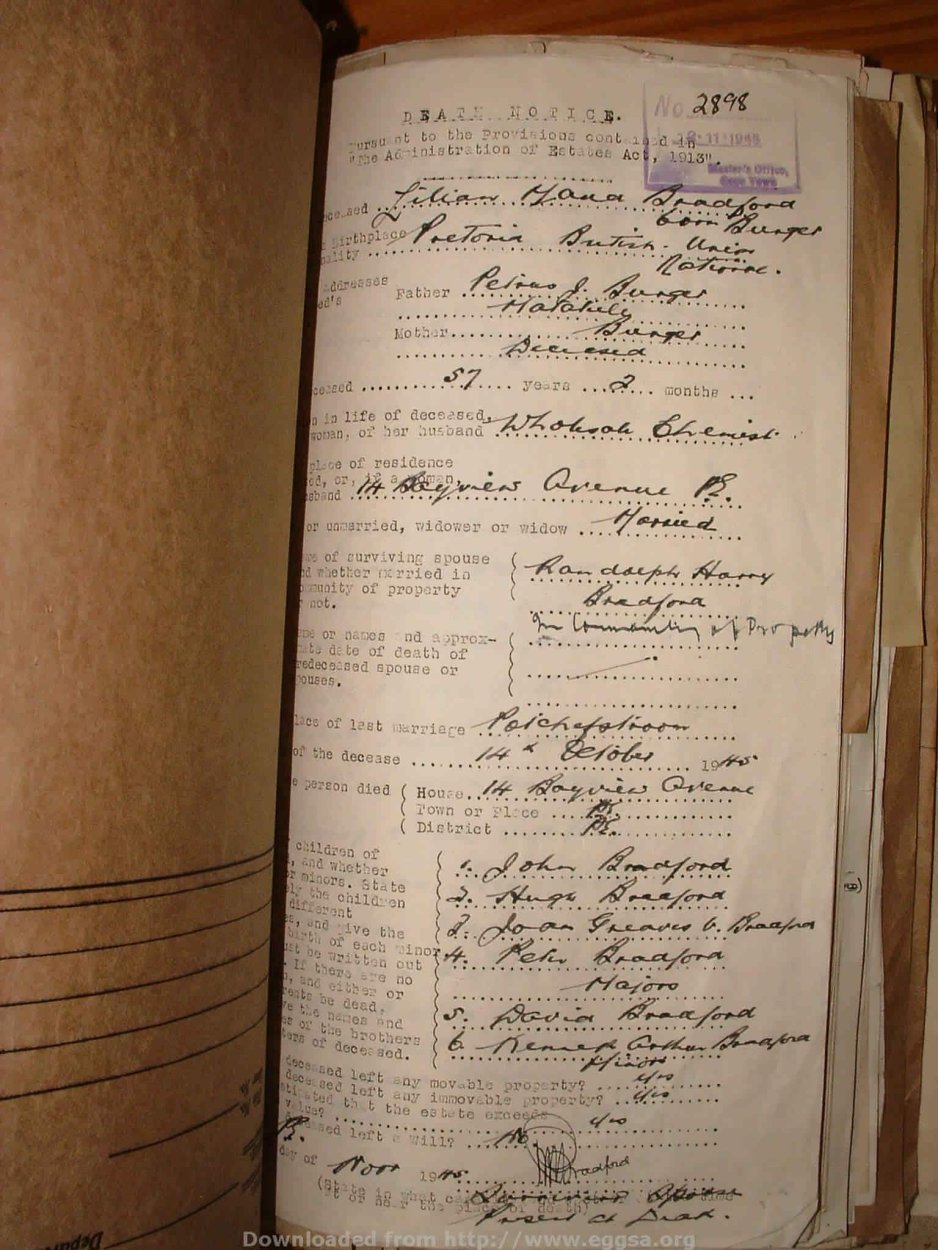 No 2898
DEATH NOTICE.
Pursuant to the Provisions contained in
"The Administration of Estates Act, 1913".
12·11·1945
Master's Office,
Cape Town
ceased Lilian Bradford
born Burger
Birthplace Pretoria British - Union
ality National.
addresses
ed's Father Petrus J. Burger
Matatiele
Mother Burger
Deceased
ceased 57 years 2 months
n in life of deceased,
woman, of her husband Wholesale Chemist
place of residence
ed, or, if a woman,
usband 14 Bayview Avenue PE.
or unmarried, widower or widow Married
me of surviving spouse
nd whether married in
ommunity of property
r not.
Randolph Harry
Bradford
In Community of Property
me or names and approx-
mate date of death of
redeceased spouse or
pouses.
lace of last marriage Potchefstroom
of the decease 14th October 1945
e person died ( House 14 Bayview Avenue
( Town or Place PE.
( District PE.
children of
, and whether
or minors. State
ely the children
different
es, and give the
birth of each minor
ust be written out
. If there are no
n, and either or
rents be dead,
ve the names and
es of the brothers
ters of deceased.
1. John Bradford
2. Hugh Bradford
3. Joan Greaves b. Bradford
4. Peter Bradford
Majors
5. David Bradford
6. Kenneth Arthur Bradford
Minors
deceased left any movable property? yes
deceased left any immovable property? yes
stimated that the estate exceeds
value? yes
deceased left a will? No
P.E.
day of Nov 1945
Bradford
(State in what
at or near the place of death)
Surviving Spouse
Present at Death.
Depart
Downloaded from http://www.eggsa.org